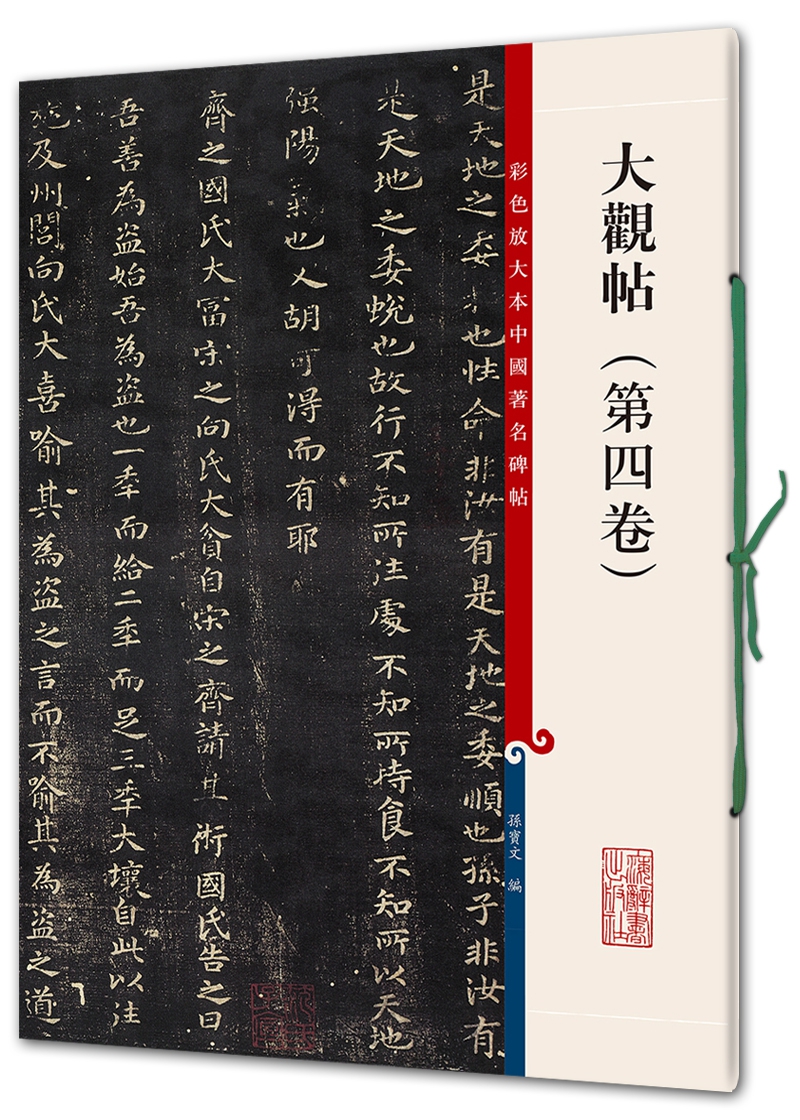 大觀帖（第四卷）
彩色放大本中國著名碑帖
孫寶文 編
是天地之委也性命非汝有是天地之委順也孫子非汝有
是天地之委蛻也故行不知所往處不知所持食不知所以天地
强陽氣也又胡可得而有耶
齊之國氏大富宋之向氏大貧自宋之齊請其術國氏告之曰
吾善為盜始吾為盜也一年而給二年而足三年大壤自此以往
施及州閭向氏大喜喻其為盜之言而不喻其為盜之道
上海辭書出版社